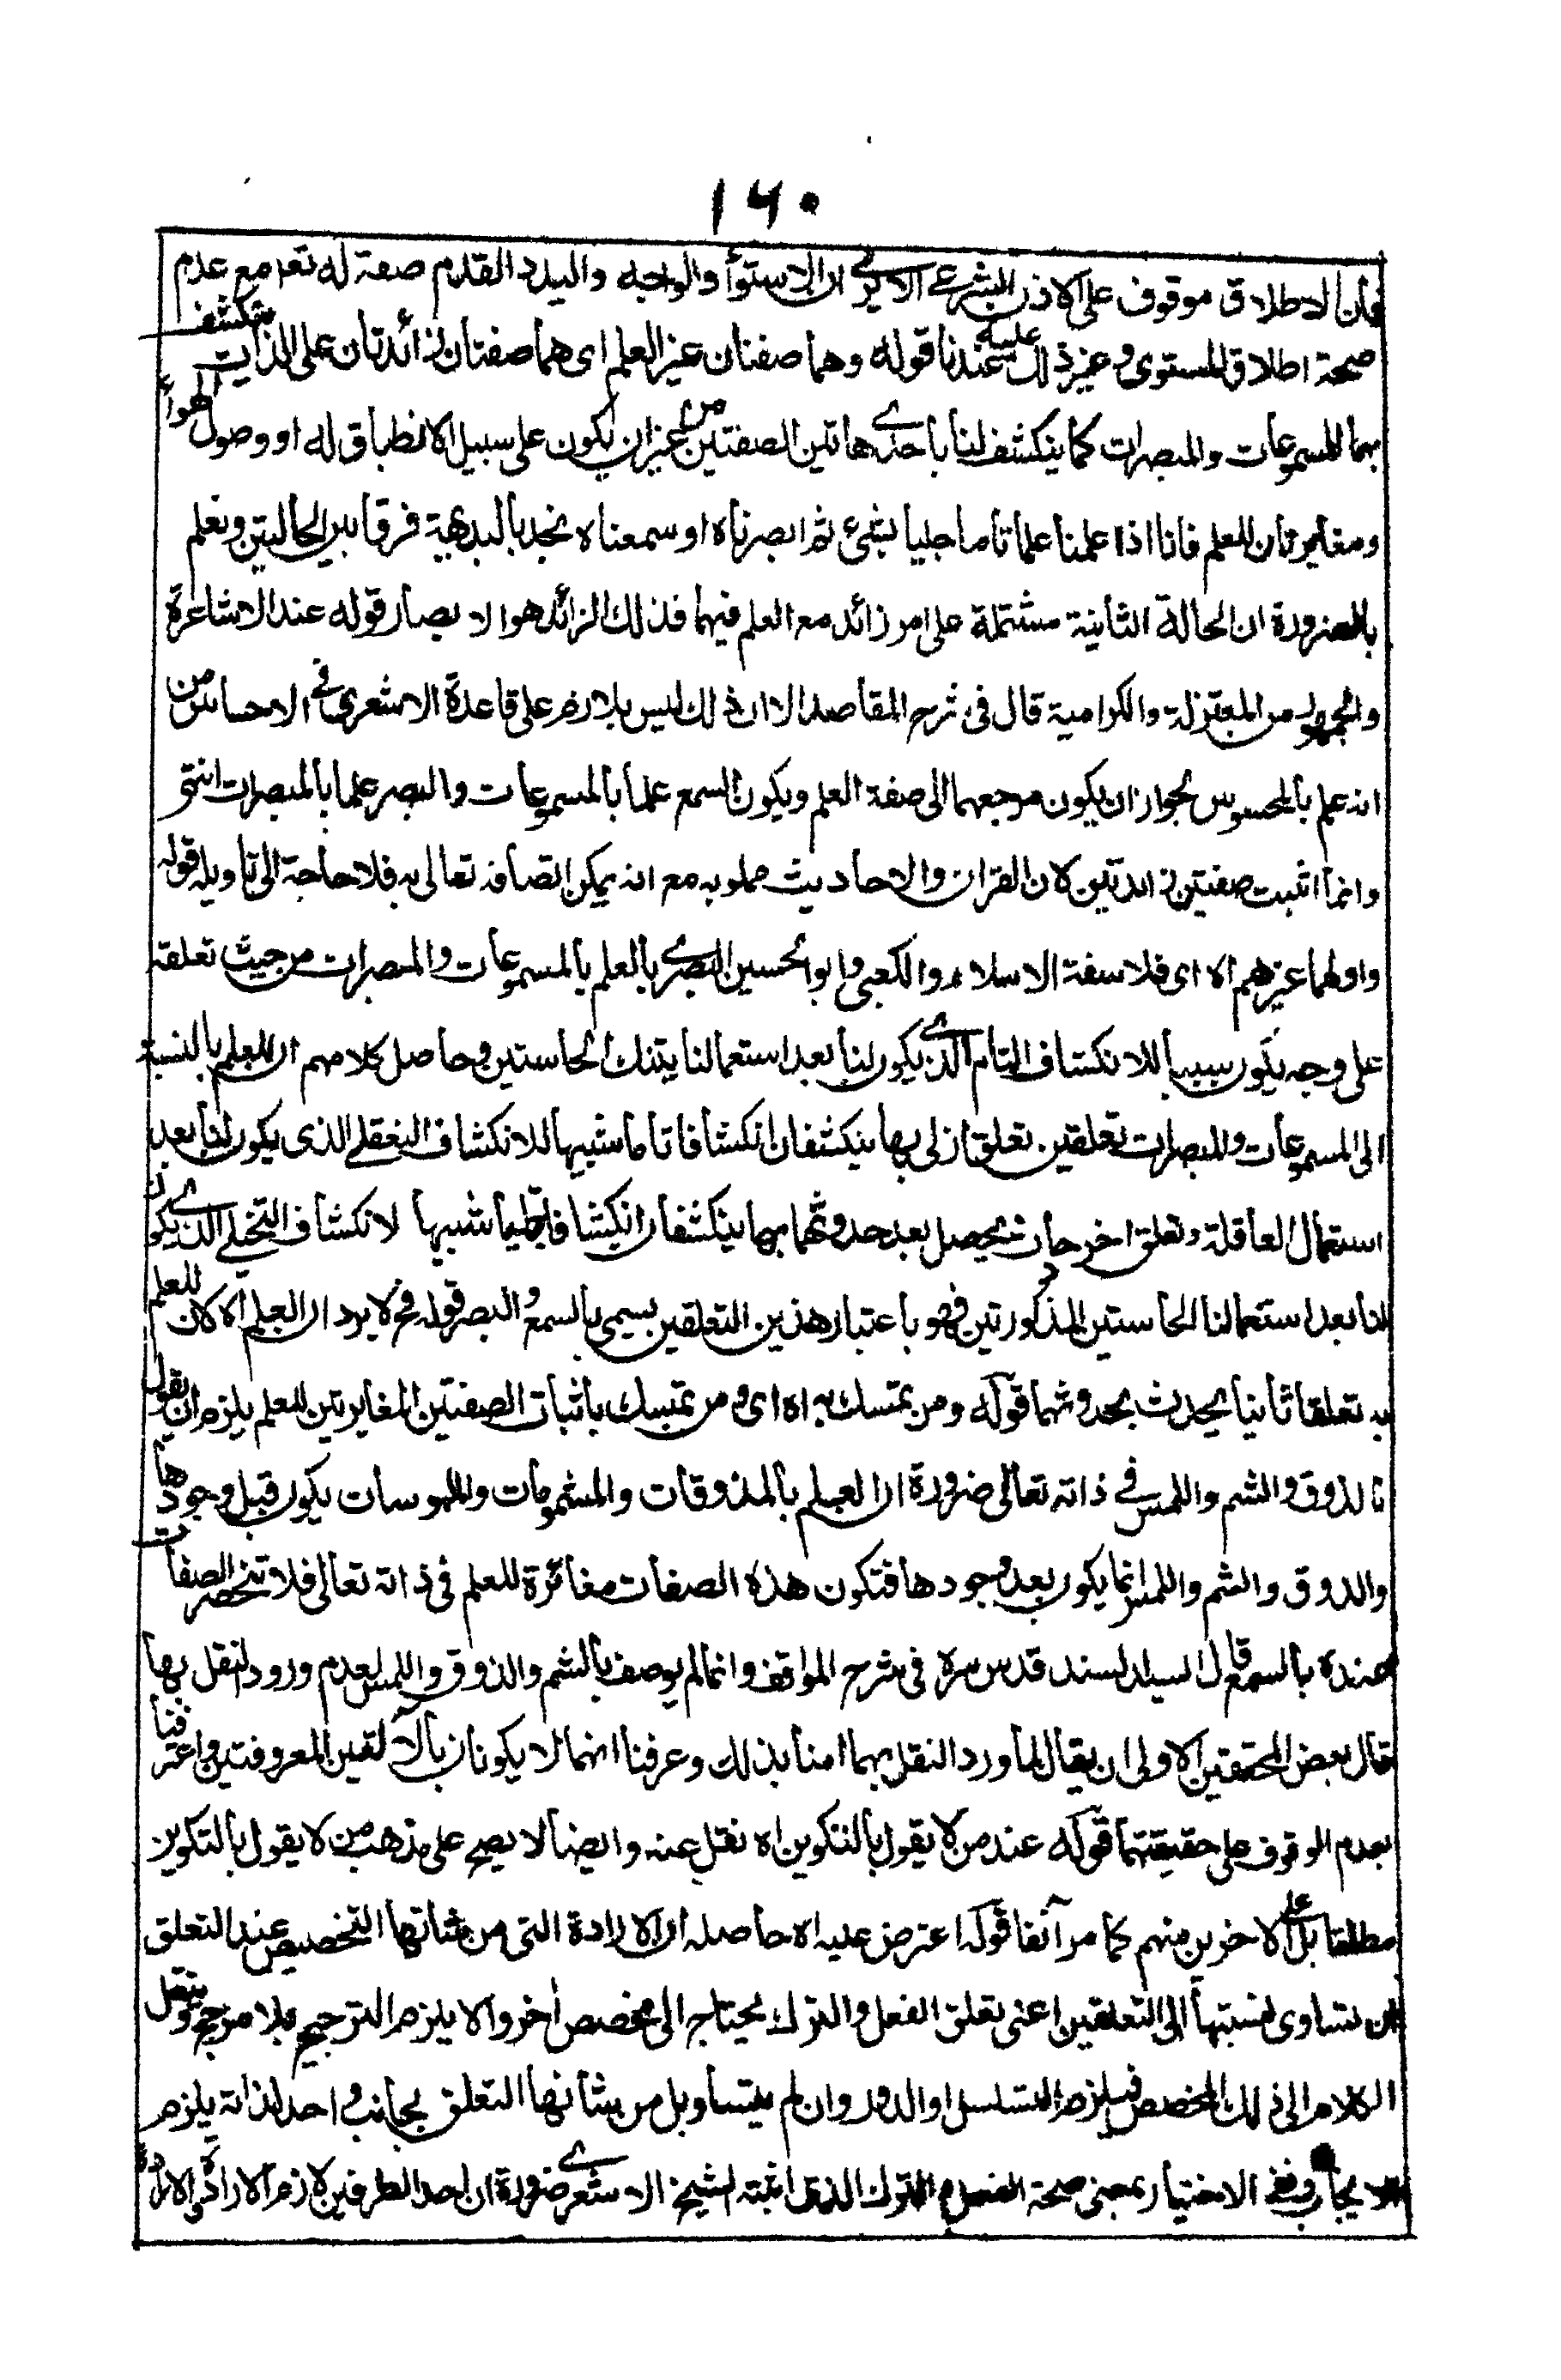 ١٦٠
فان الاطلاق موقوف على الاذن الشرعى الا يرى ان الاستواء والوجه واليد والقدم صفة له تعم مع عدم
صحة اطلاق المستوى وغير ذلك عليه عندنا قوله وهما صفتان غير العلم اى هما صفتان زائدتان على الذات ينكشف
بهما المسموعات والمبصرات كما ينكشف لنا باحدى هاتين الصفتين من غير ان يكون على سبيل الانطباق له او وصول الهواء
ومغايرتان للعلم فانا اذا علمنا علما تاما جليا بشئ ثم ابصرناه او سمعناه نجد بالبديهية فرقا بين الحالتين ونعلم
بالضرورة ان الحالة الثانية مشتملة على امر زائد مع العلم فيهما فذلك الزائد هو الابصار قوله عند الاشاعرة
والجمهور من المعتزلة والكرامية قال فى شرح المقاصد الا ان ذلك ليس بلازم على قاعدة الاشعرى فى الاحساس من
انه علم بالمحسوس لجواز ان يكون مرجعهما الى صفة العلم ويكون السمع علما بالمسموعات والبصر علما بالمبصرات انتهى
وانما اثبت صفتين زائدتين لان القران والاحاديث مملو به مع انه يمكن اتصافه تعالى به فلا حاجة الى تاويله قوله
واولهما غيرهم اه اى فلاسفة الاسلام والكعبى وابو الحسين البصرى بالعلم بالمسموعات والمبصرات من حيث تعلقه
على وجه يكون سببا للانكشاف التام الذى يكون لنا بعد استعمالنا بتذك الحاستين وحاصل كلامهم ان للعلم بالنسبة
الى المسموعات والمبصرات تعلقين تعلق ازلى بها ينكشفان انكشافا تاما شبيها للانكشاف التعقلى الذى يكون لنا بعد
استعمال العاقلة وتعلق اخر حادث يحصل بعد حدوثهما بهما ينكشفان انكشافا جليا شبيها لانكشاف التخيلى الذى يكون
لنا بعد استعمالنا الحاستين المذكورتين فهو باعتبار هذين التعلقين يسمى بالسمع والبصر قوله فح لا يرد ان العلم الا كان للعلم
به تعلقا ثانيا يحدث بحدوثهما قوله ومن يتمسك به اه اى ومن يتمسك باثبات الصفتين المغايرتين للعلم يلزم ان يقول
بالذوق والشم واللمس فى ذاته تعالى ضرورة ان العلم بالمذوقات والمشمومات والملموسات يكون قبل وجودها
والذوق والشم واللمس انما يكون بعد وجودها فتكون هذه الصفات مغائرة للعلم فى ذاته تعالى فلا تنحصر الصفات
عنده بالسمع قال السيد السند قدس سره فى شرح المواقف وانما لم يوصف بالشم والذوق واللمس لعدم ورود النقل بها
قال بعض المحققين الاولى ان يقال لما ورد النقل بهما امنا بذلك وعرفنا انهما لا يكونان بالآلتين المعروفتين واعترفنا
بعدم الوقوف على حقيقتهما قوله عند من لا يقول بالتكوين اه نقل عنه وايضا لا يصح على مذهب من لا يقول بالتكوين
مطلقا بل على الاخرين منهم كما مر آنفا قوله اعترض عليه اه حاصله ان الارادة التى من شانها التخصيص عند التعلق
ان تساوى نسبتها الى التعلقين اعنى تعلق الفعل والترك يحتاج الى مخصص اخر والا يلزم الترجيح بلا مرجح وننقل
الكلام الى ذلك المخصص فيلزم التسلسل او الدور وان لم يتساو بل من شانها التعلق بجانب واحد لذاته يلزم
الايجاب ونفى الاختيار بمعنى صحة الفعل والترك الذى اثبته الشيخ الاشعرى ضرورة ان احد الطرفين لازم الارادة